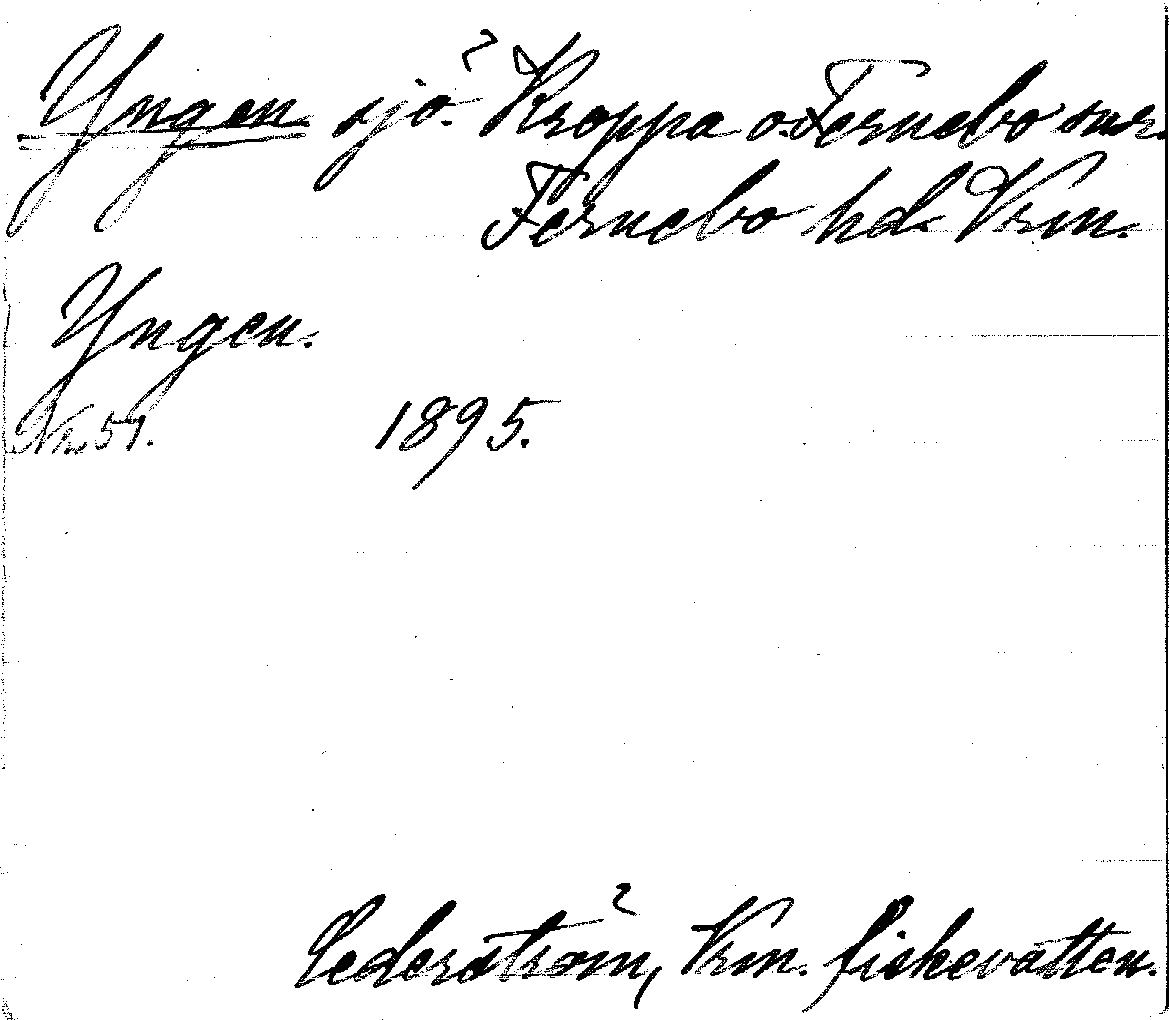 Yngen sjö. Kroppa o. Fernebo snr.
Fernebo hd. Vrm.
Yngen.
Nr. 51. 1895.
Cederström, Vrm. fiskevatten.